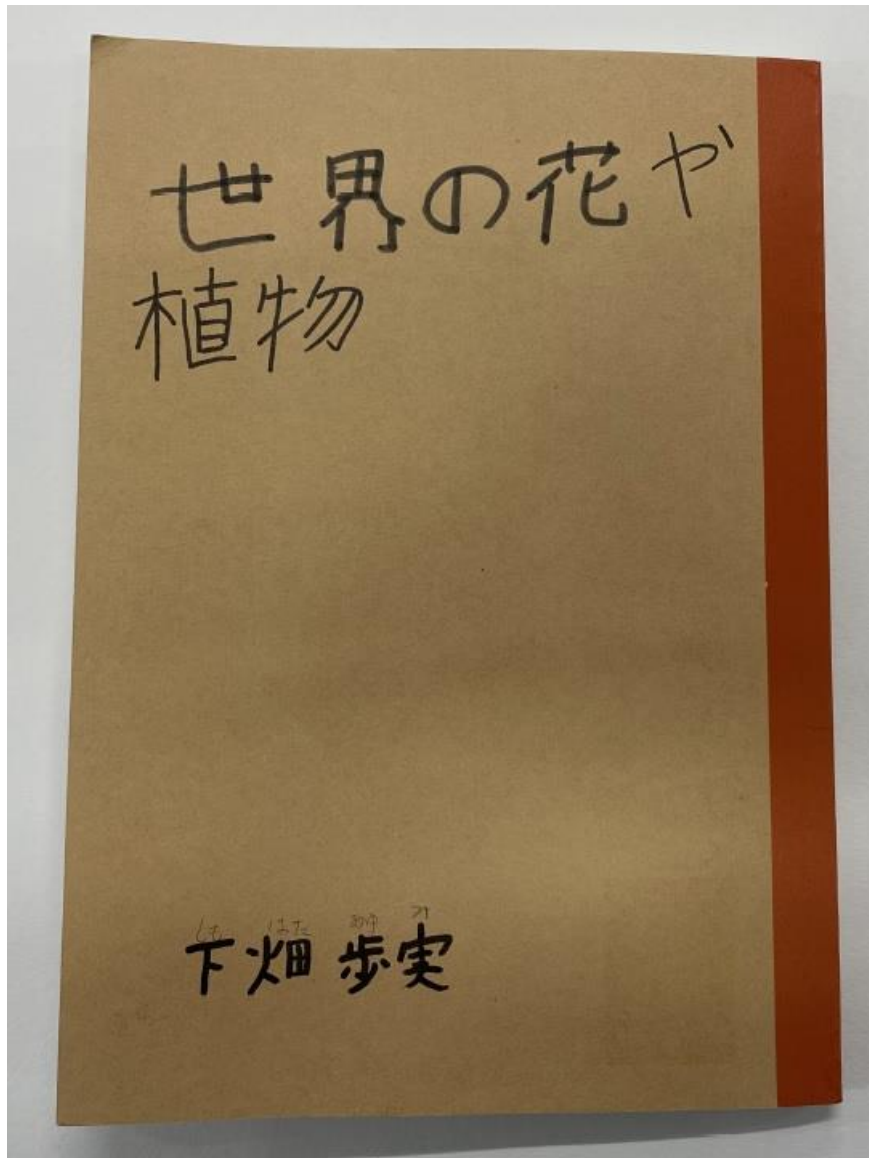 世界の花や
植物
しもはたあゆみ
下畑歩実